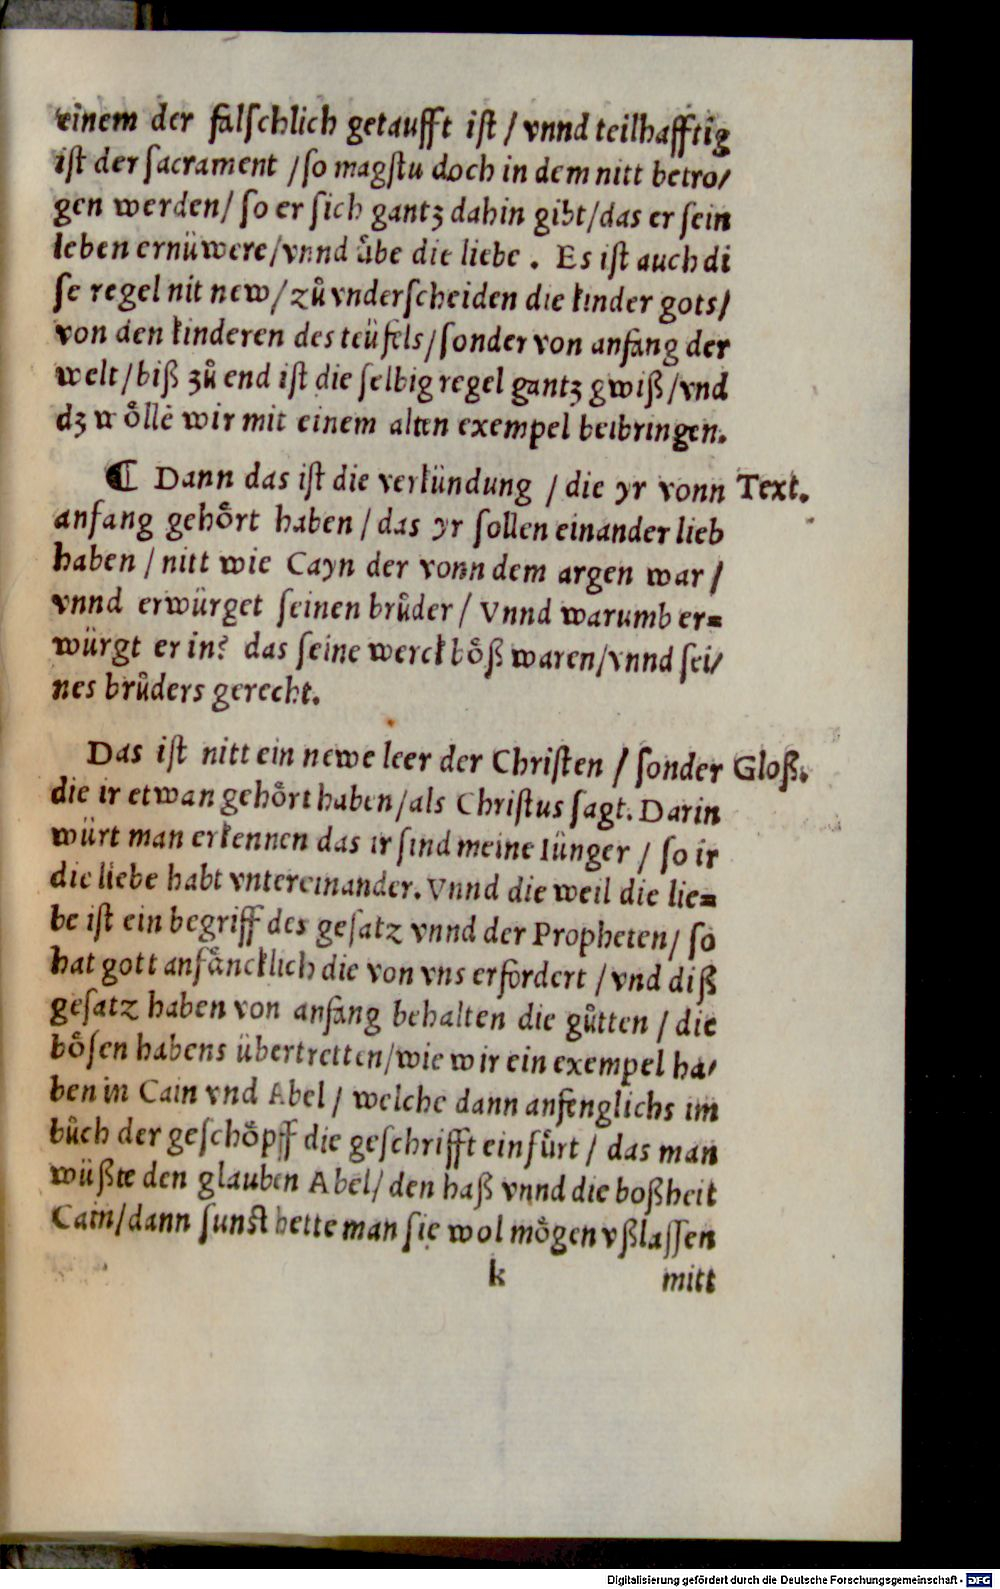 einem der falſchlich getaufft iſt / vnnd teilhafftig
iſt der ſacrament / ſo magſtu doch in dem nitt betro/
gen werden / ſo er ſich gantz dahin gibt / das er ſein
leben ernüwere / vnnd uͤbe die liebe . Es iſt auch di
ſe regel nit new / zuͦ vnderſcheiden die kinder gots /
von den kinderen des teüfels / ſonder von anfang der
welt / biß zuͦ end iſt die ſelbig regel gantz gwiß / vnd
dz woͤllē wir mit einem alten exempel beibringen.
¶ Dann das iſt die verkündung / die yr vonn Text.
anfang gehoͤrt haben / das yr ſollen einander lieb
haben / nitt wie Cayn der vonn dem argen war /
vnnd erwürget ſeinen bruͦder / Vnnd warumb er=
würgt er in? das ſeine werck boͤß waren / vnnd ſei/
nes bruͦders gerecht.
Das iſt nitt ein newe leer der Chriſten / ſonder Gloß.
die ir etwan gehoͤrt haben / als Chriſtus ſagt. Darin
würt man erkennen das ir ſind meine Iünger / ſo ir
die liebe habt vntereinander. Vnnd die weil die lie=
be iſt ein begriff des geſatz vnnd der Propheten / ſo
hat gott anfaͤncklich die von vns erfordert / vnd diß
geſatz haben von anfang behalten die guͦtten / die
boͤſen habens übertretten / wie wir ein exempel ha/
ben in Cain vnd Abel / welche dann anfenglichs im
buͦch der geſchoͤpff die geſchrifft einfuͤrt / das man
wüßte den glauben Abel / den haß vnnd die boßheit
Cain / dann ſunſt hette man ſie wol moͤgen vßlaſſen
k mitt
Digitalisierung gefördert durch die Deutsche Forschungsgemeinschaft - DFG